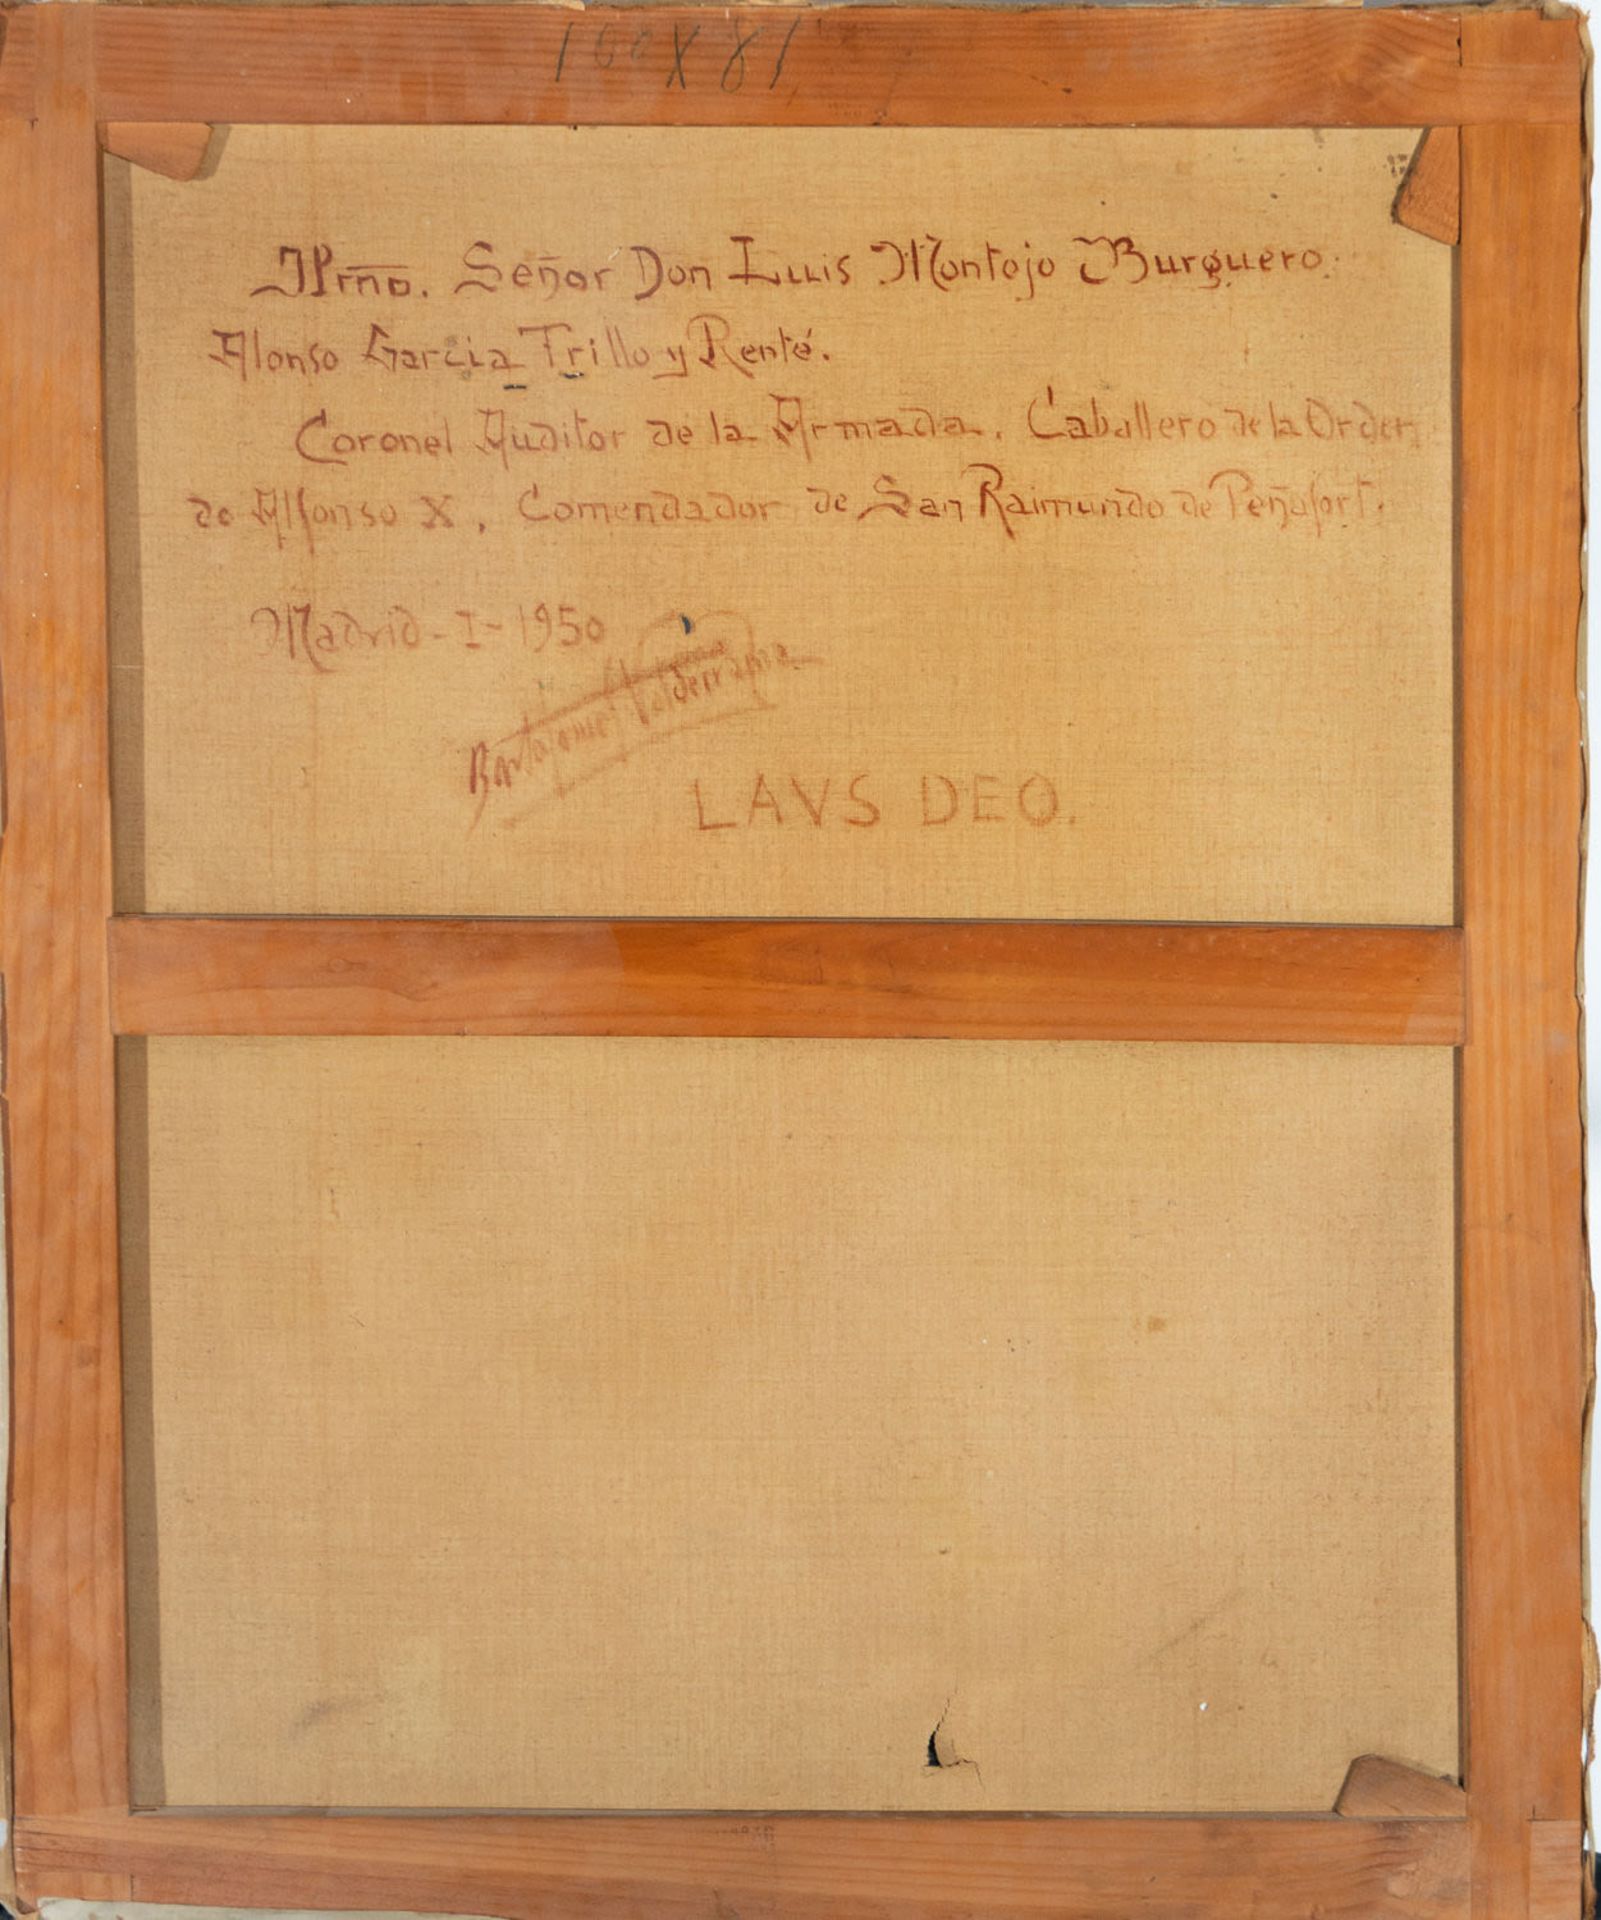 100 X 81
Ilmo. Señor Don Luis Montojo Burguero.
Alonso Garcia Trillo y Renté.
Coronel Auditor de la Armada. Caballero de la Orden
de Alfonso X. Comendador de San Raimundo de Peñafort.
Madrid-I-1950
Bartolomé Valderrama
LAVS DEO.